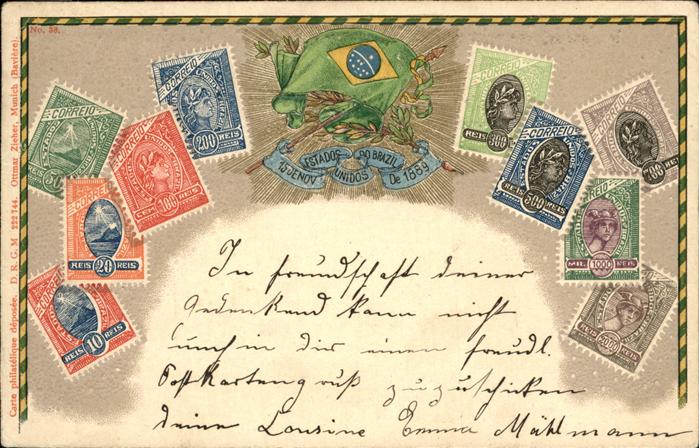 No. 58.
Carte philatélique déposée. D. R. G. M 222744. Ottmar Zieher, Munich (Bavière).
CORREIO
50 REIS
CORREIO
200 REIS
CORREIO
CEM 100 REIS
CORREIO
REIS 20 REIS
REIS 10 REIS
ESTADOS DO BRAZIL
15 DE NOV UNIDOS De 1889
CORREIO
REIS 300
CORREIO
REIS 500
CORREIO
700 REIS
CORREIO
MIL 1000 REIS
REIS 2000
In freundschaft deiner
Gedenkend kann nicht
umhin dir einen freudl.
Postkartengruß zuzuschicken
deine Cousine Emma Mühlmann